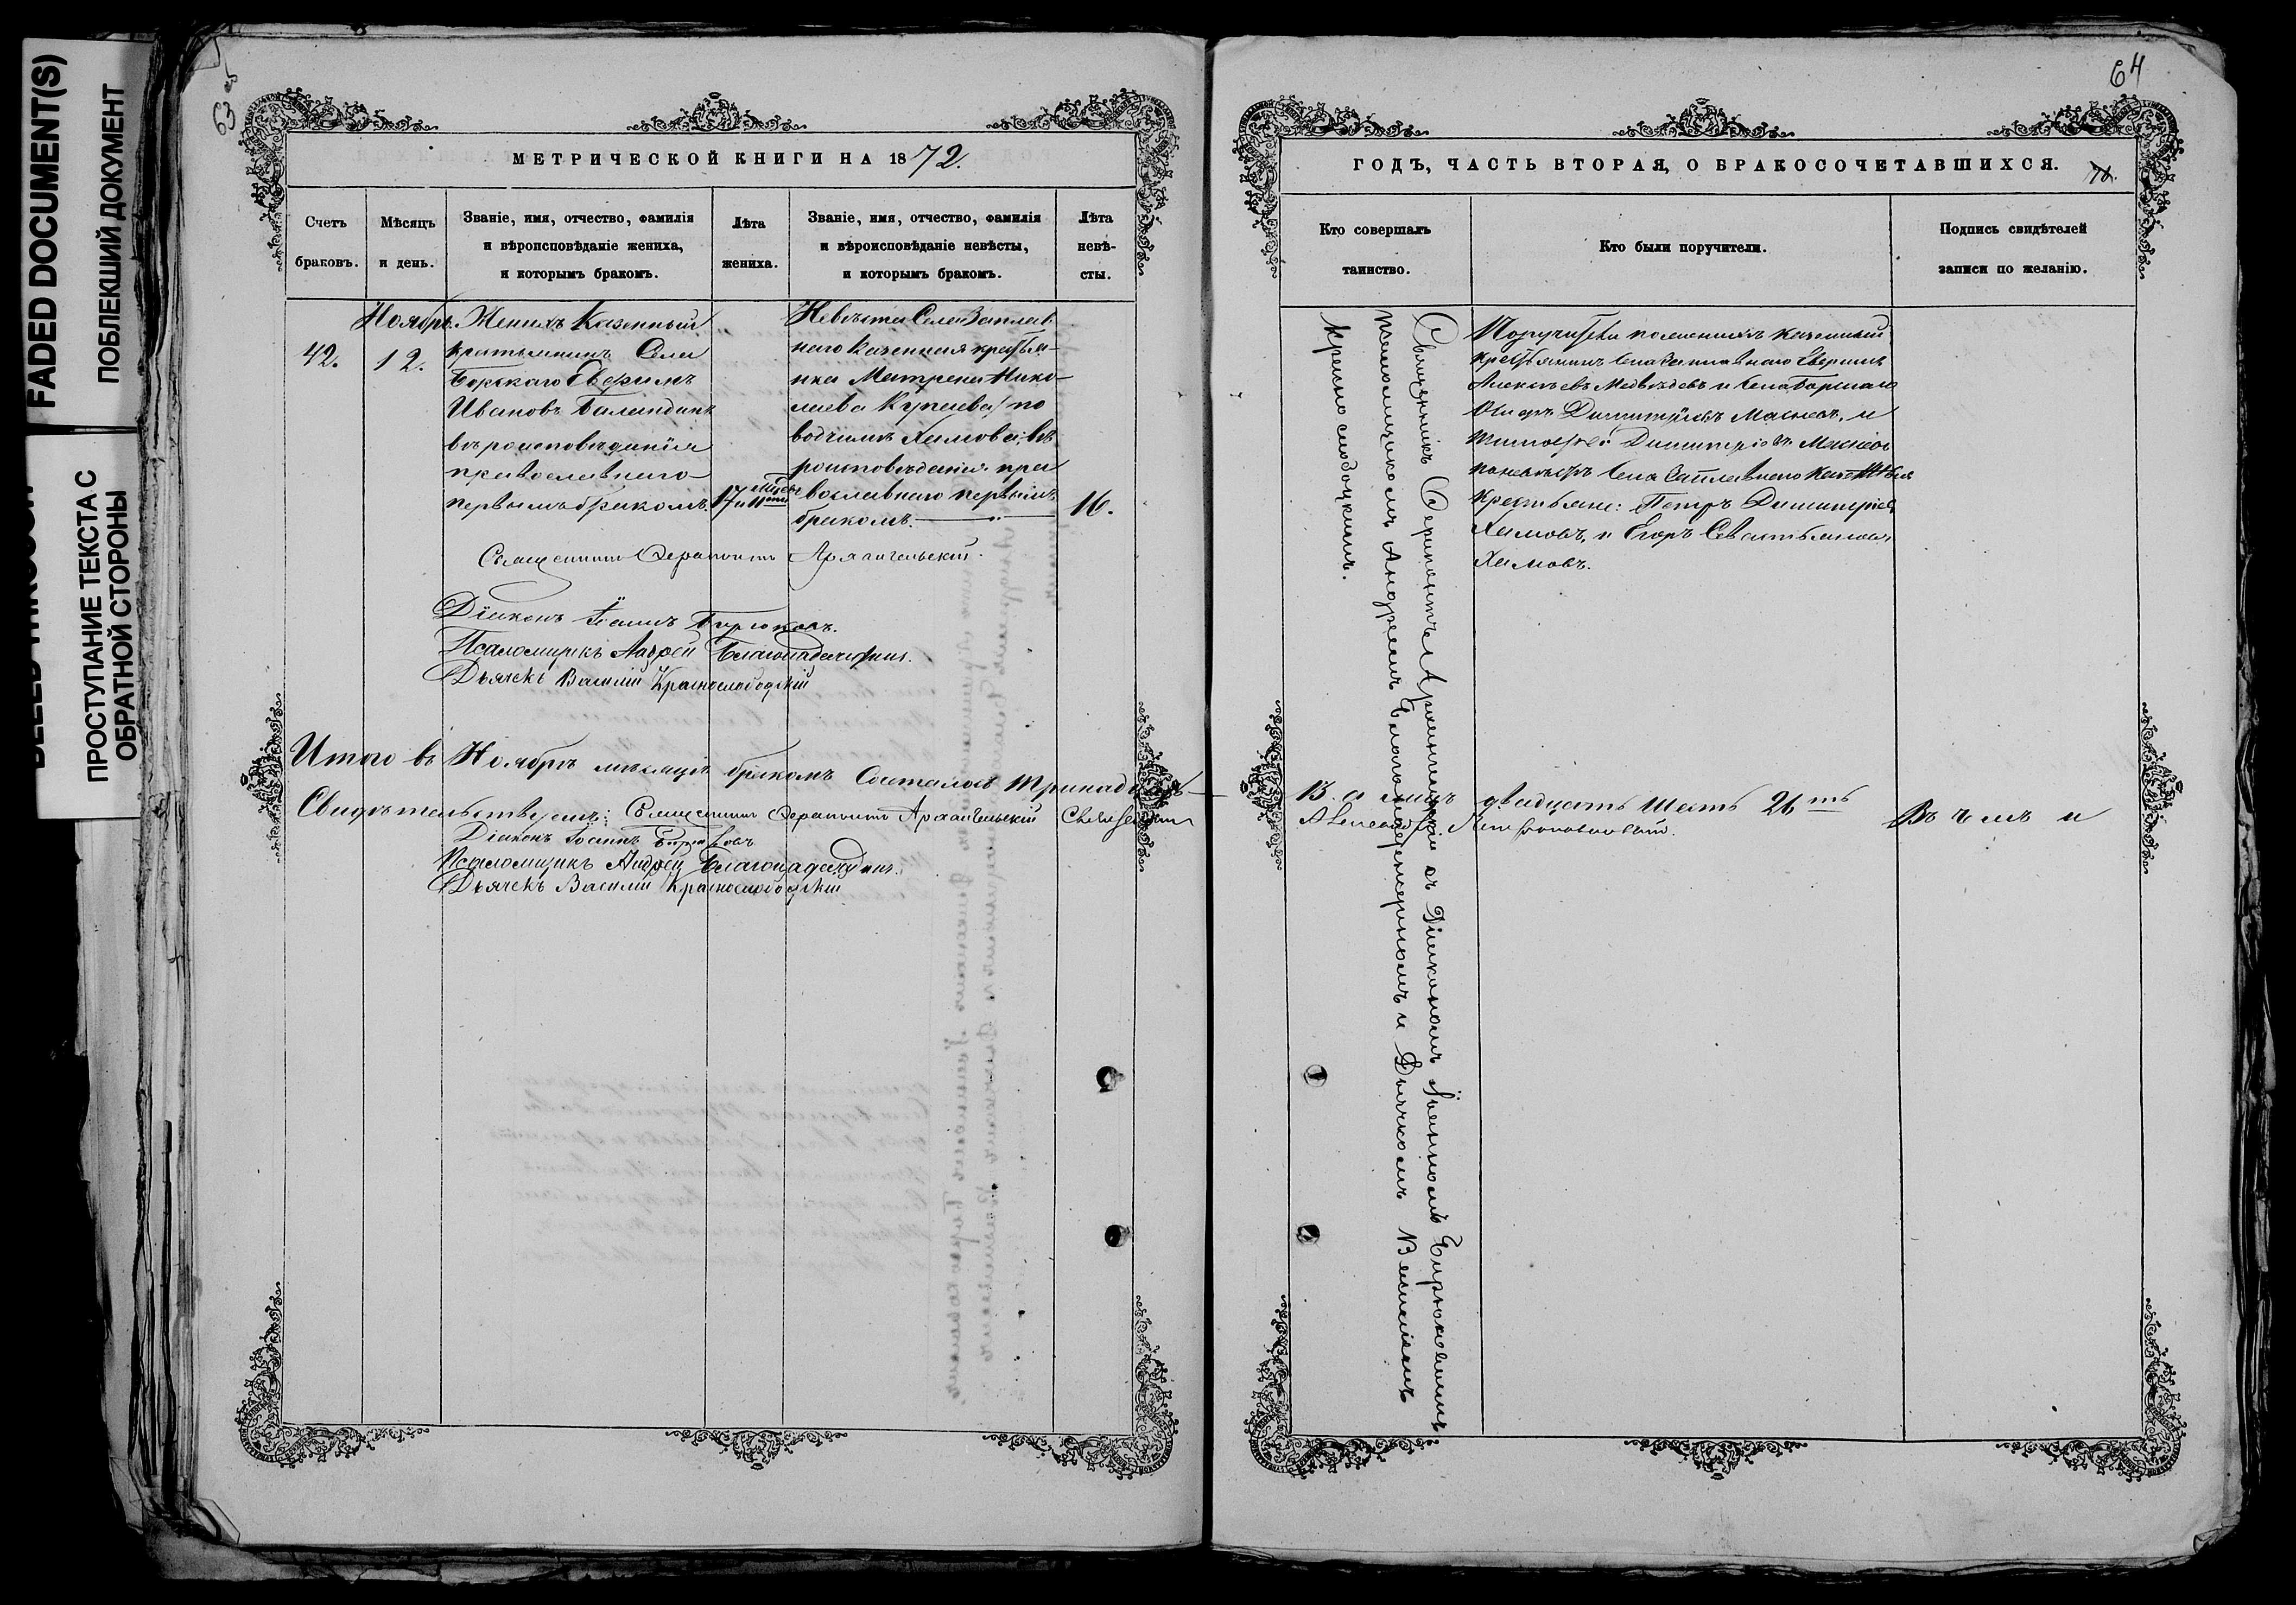 FADED DOCUMENT(S)
ПОБЛЕКШИЙ ДОКУМЕНТ
ПРОСТУПАНИЕ ТЕКСТА С
ОБРАТНОЙ СТОРОНЫ
63
МЕТРИЧЕСКОЙ КНИГИ НА 1872.
Счетъ браковъ.
Мѣсяцъ и день.
Званіе, имя, отчество, фамилія
и вѣроисповѣданіе жениха,
и которымъ бракомъ.
Лѣта жениха.
Званіе, имя, отчество, фамилія
и вѣроисповѣданіе невѣсты,
и которымъ бракомъ.
Лѣта невѣ-
сты.
Ноябрь.
42.
12.
Женихъ Казенный
крестьянинъ Села
Борскаго Евфимъ
Ивановъ Баландинъ
вѣроисповѣданія
православнаго
первымъ бракомъ.
17 и 11
Невѣста Села Заплав
наго казенная крестья-
нка Матрена Нико-
лаева Купаева по
вотчимѣ Хамова, вѣ
роисповѣданія пра
вославнаго первымъ
бракомъ.
16.
Священникъ Ферапонтъ Архангельскій.
Діаконъ Іоаннъ Бирюковъ.
Псаломщикъ Андрей Благонадеждинъ.
Дьячекъ Василій Краснослободскій
Итого въ Ноябрѣ мѣсяцѣ бракомъ Сочеталось тринадцать
Свидѣтельствуемъ: Священникъ Ферапонтъ Архангельскій
Діаконъ Іоаннъ Бирюковъ
Псаломщикъ Андрей Благонадеждинъ.
Дьячекъ Василій Краснослободскій
64
ГОДЪ, ЧАСТЬ ВТОРАЯ, О БРАКОСОЧЕТАВШИХСЯ.
Кто совершалъ
таинство.
Кто были поручители.
Подпись свидѣтелей
записи по желанію.
Священникъ Ферапонтъ Архангельскій съ Діакономъ Іоанномъ Бирюковымъ
псаломщикомъ Андреемъ Благонадеждинымъ и Дьячкомъ Василіемъ
Краснослободскимъ.
Поручители по женихѣ казенный
крестьянинъ Села Заплавнаго
Алексѣевъ Медвѣдевъ и Села Борскаго
Димитріевъ и
Димитріевъ
по невѣстѣ Села Заплавнаго
крестьяне: Петръ Димитріевъ
Хамовъ, и Егоръ Севастьяновъ
Хамовъ.
двадцать шесть 26
Въ чемъ и